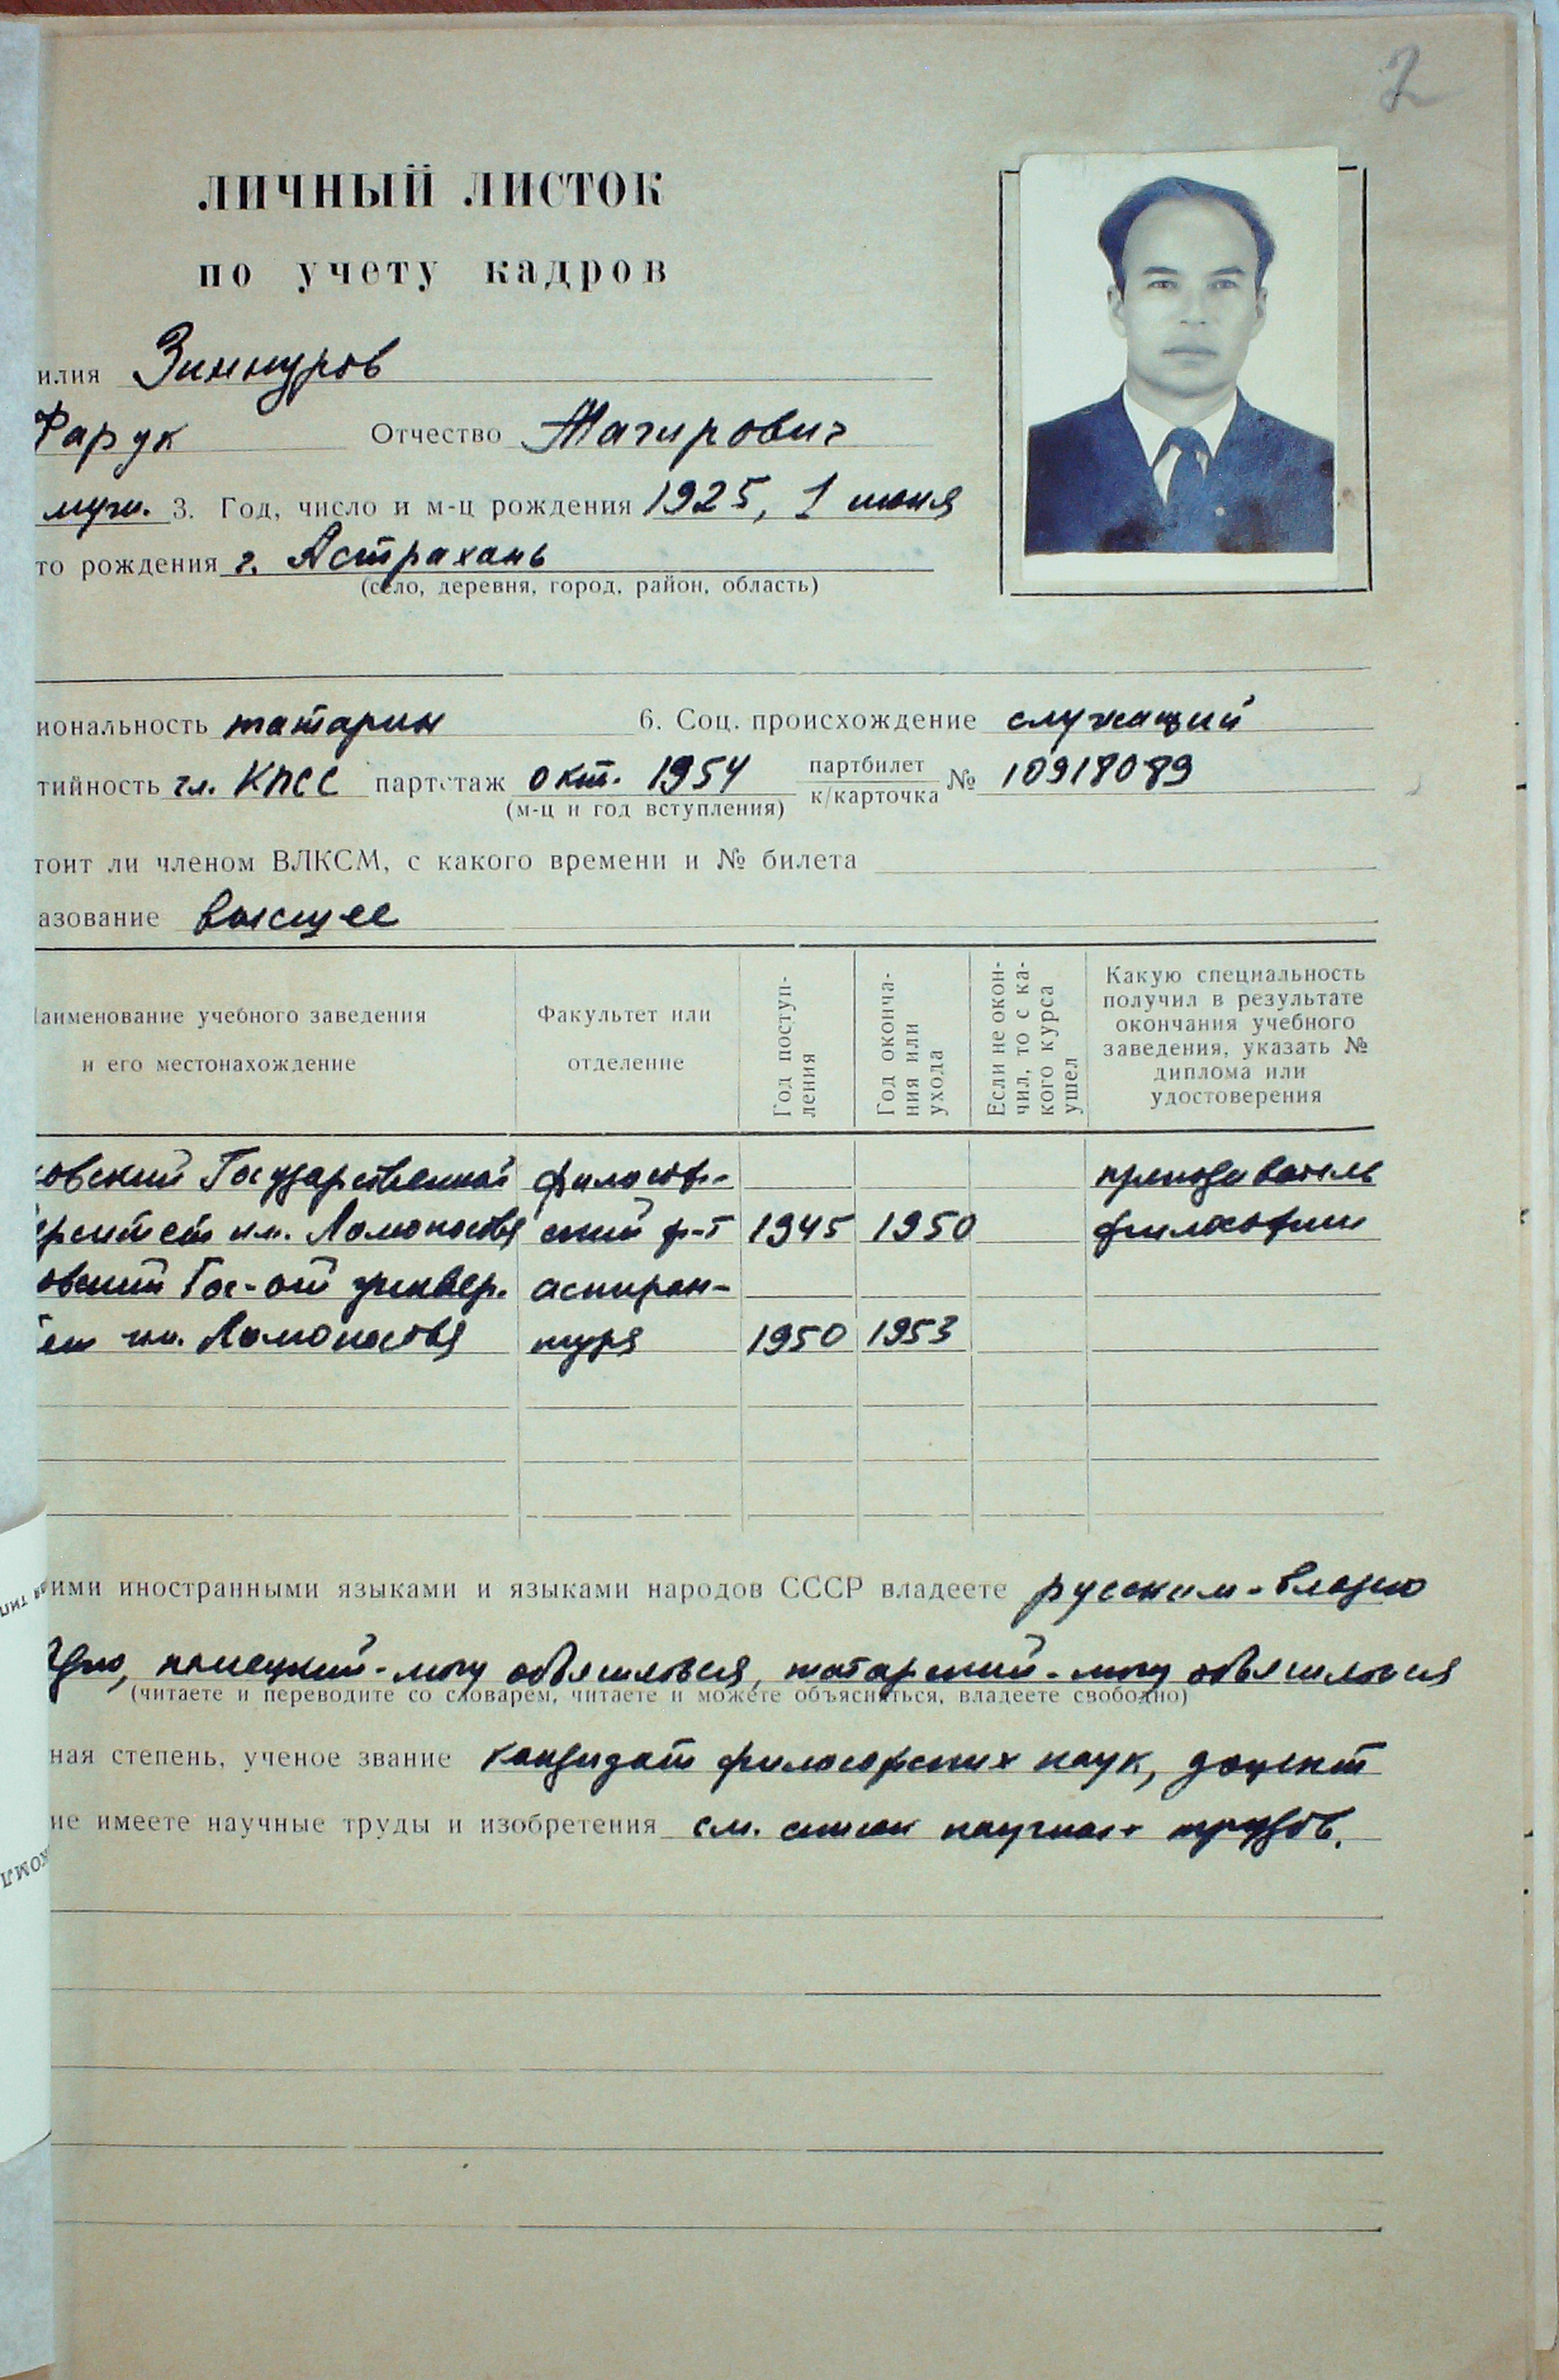 2
ЛИЧНЫЙ ЛИСТОК
по учету кадров
илия Зиннуров
Фарук Отчество Тагирович
муж. 3. Год, число и м-ц рождения 1925, 1 июня
то рождения г. Астрахань
(село, деревня, город, район, область)
иональность татарин 6. Соц. происхождение служащий
тийность чл. КПСС партстаж окт. 1954 партбилет
к/карточка № 10918089
(м-ц и год вступления)
тоит ли членом ВЛКСМ, с какого времени и № билета
азование высшее
аименование учебного заведения
и его местонахождение
Факультет или
отделение
Год поступ-
ления
Год оконча-
ния или
ухода
Если не окон-
чил, то с ка-
кого курса
ушел
Какую специальность
получил в результате
окончания учебного
заведения, указать №
диплома или
удостоверения
овский Государственный философ- преподаватель
ерситет им. Ломоносова ский ф-т 1945 1950 философии
овский Гос-ый универ. аспиран-
ет им. Ломоносова тура 1950 1953
ими иностранными языками и языками народов СССР владеете русским-владею
немецкий-могу объясняться, татарский-могу объясняться
(читаете и переводите со словарем, читаете и можете объясняться, владеете свободно)
ная степень, ученое звание кандидат философских наук, доцент
ие имеете научные труды и изобретения см. список научных трудов.